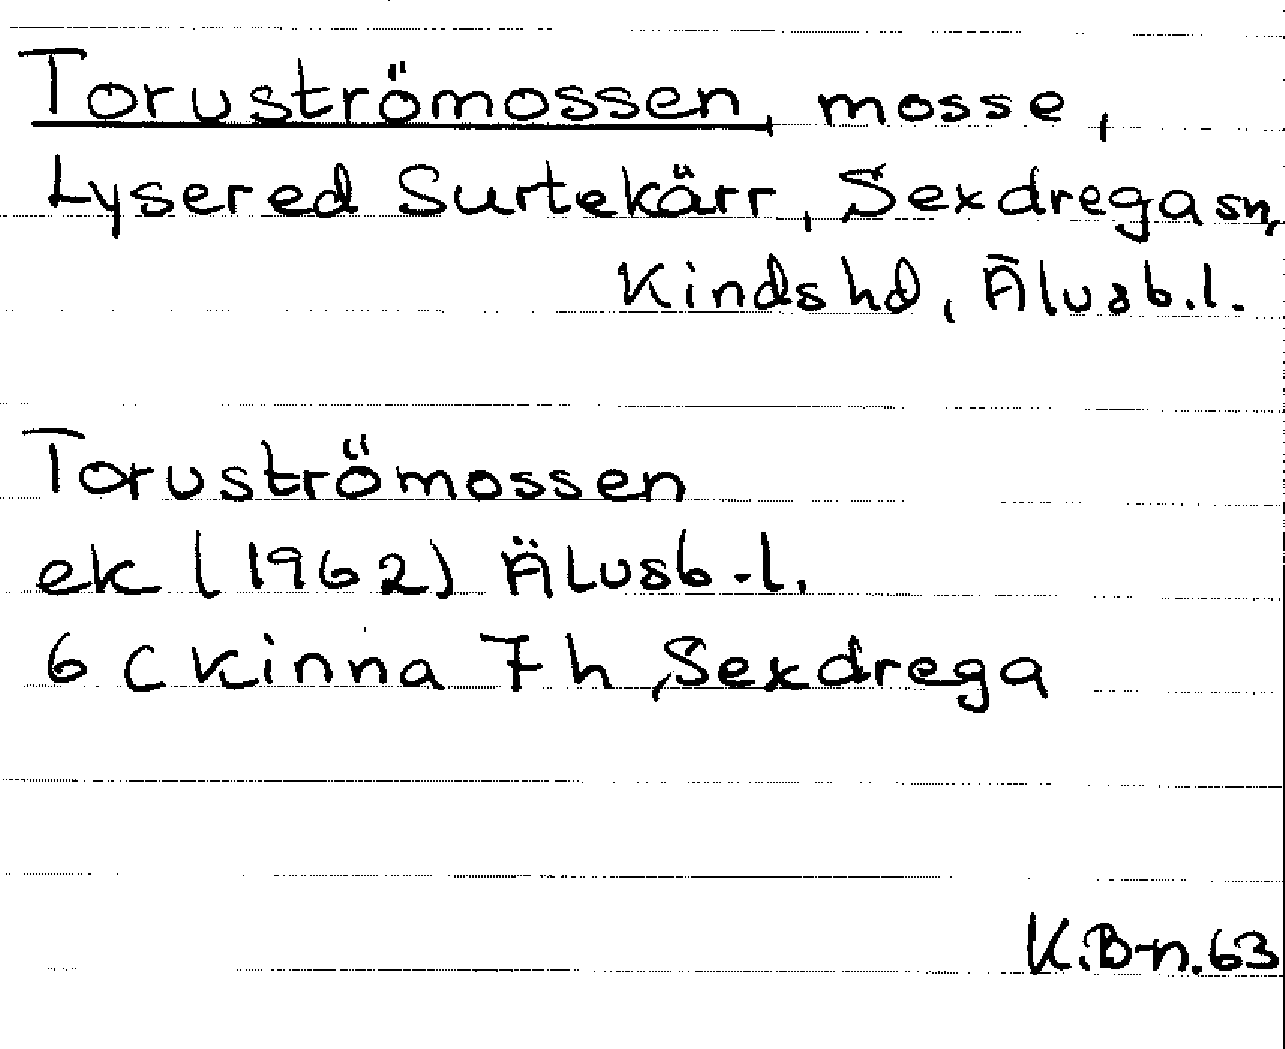 Toruströmossen, mosse,
Lysered Surtekärr, Sexdrega sn,
Kinds hd, Älvsb.l.
Toruströmossen
ek (1962) Älvsb.l.
6 C Kinna 7 h, Sexdrega
K.B-n.63